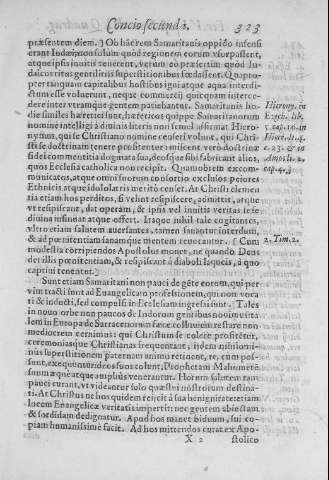 Concio secunda. 323
præsentem diem.) Ob hãc rem Samaritanis oppido infensi
erant Iudæi, non solum quòd regionem eorum vsurpassent,
atque ipsis inuitis tenerent, verum eo præsertim quòd Iu-
daicos ritus gentilitiis superstitionibus fœdassent. Quaprop-
ter tanquam capitalibus hostibus igni atque aqua interdi-
ctum esse volebant, neque commercij quicquam interce-
dere inter vtramque gentem patiebantur. Samaritanis ho-
die similes hæretici sunt, hæreticos quippe Samaritanorum
nomine intelligi in diuinis literis non semel affirmat Hiero-
nymus, qui se Christiano nomine censeri volunt, qui Chri-
sti se doctrinam tenere profitentur: miscent verò doctrinæ
fidei commentitia dogmata sua, deosque sibi fabricant alios,
quos Ecclesia catholica non recipit. Quamobrem excom-
municatos, atque omnium consortio exclusos peiores
Ethnicis atque idololatris meritò censet. At Christi clemen
tia etiam hos perditos, si velint resipiscere, admittit, atque
vt resipiscant, dat operam, & ipsis vel inuitis veritas se se
diuina insinuat atque offert. Itaque iubet tales cogitantes,
vltro etiam salutem auersantes, tamen sanantur interdum,
& ad pœnitentiam sanamque mentem reuocantur. (Cum
modestia corripiendos Apostolus monet, ne quando Deus
det illis pœnitentiam, & resipiscant à diaboli laqueis, à quo
captiui tenentur.)
Sunt etiam Samaritani non pauci de gẽte eorum, qui per
vim tracti sunt ad Euangelicam professionem, qui non voca
ti & inducti, sed compulsi in Ecclesiam ingressi sunt. Tales
in nouo orbe non paucos de Indorum gentibus nouimus: ta
les in Europa de Sarracenorum fæce
mediocrem cernimus qui Christum se colere profitetur,
ceremoniasque Christianas frequentant; iidem nihilomi-
nus superstitionem paternam animo retinent, re, cum pos-
sunt, exequuntur: deos suos colunt, Prophetam Mahumetẽ
summa æquè atque ampliùs venerantur. Horum salutem tam
pauci curant, vt videantur solo quæstui nostrorum destina-
ti. At Christus ne hos quidem reiicit à sua benignitate: etiam
lucem Euangelicæ veritatis impertit: nec gentem abiectam
& sordidam dedignatur. Apud hos manet biduum, sui co-
piam humanissimè facit. Ad hos mittendos curat ex Apo-
X 2 stolico
Hieron. in
Ezech. lib.
5. cap. 16. in
Amos li. 2.
cap. 4.
2. Tim. 2.